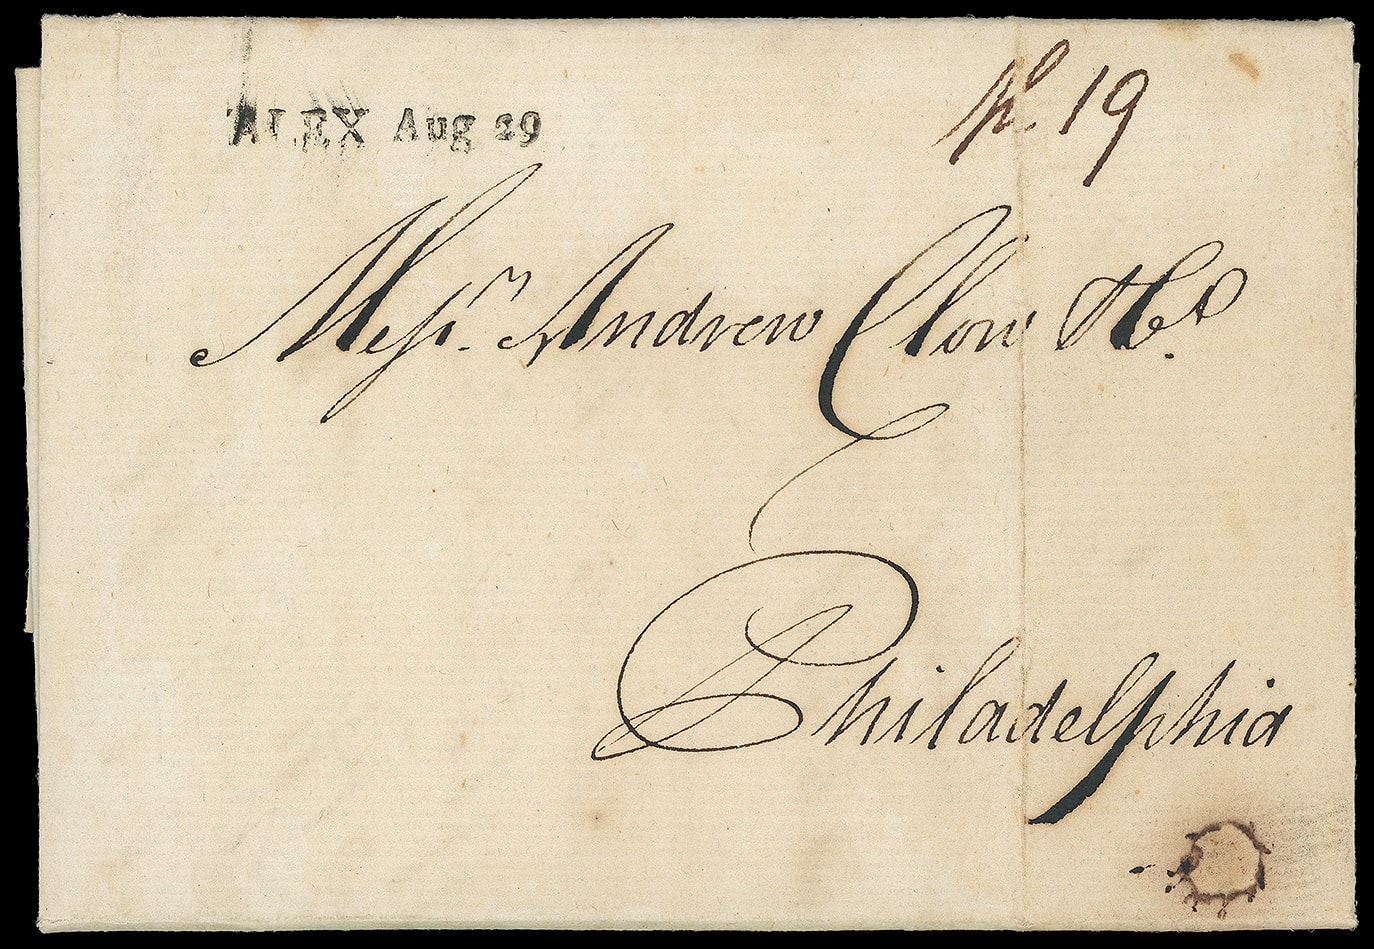 ALEX Aug 29
No. 19
Messrs. Andrew Clow & Co.
Philadelphia